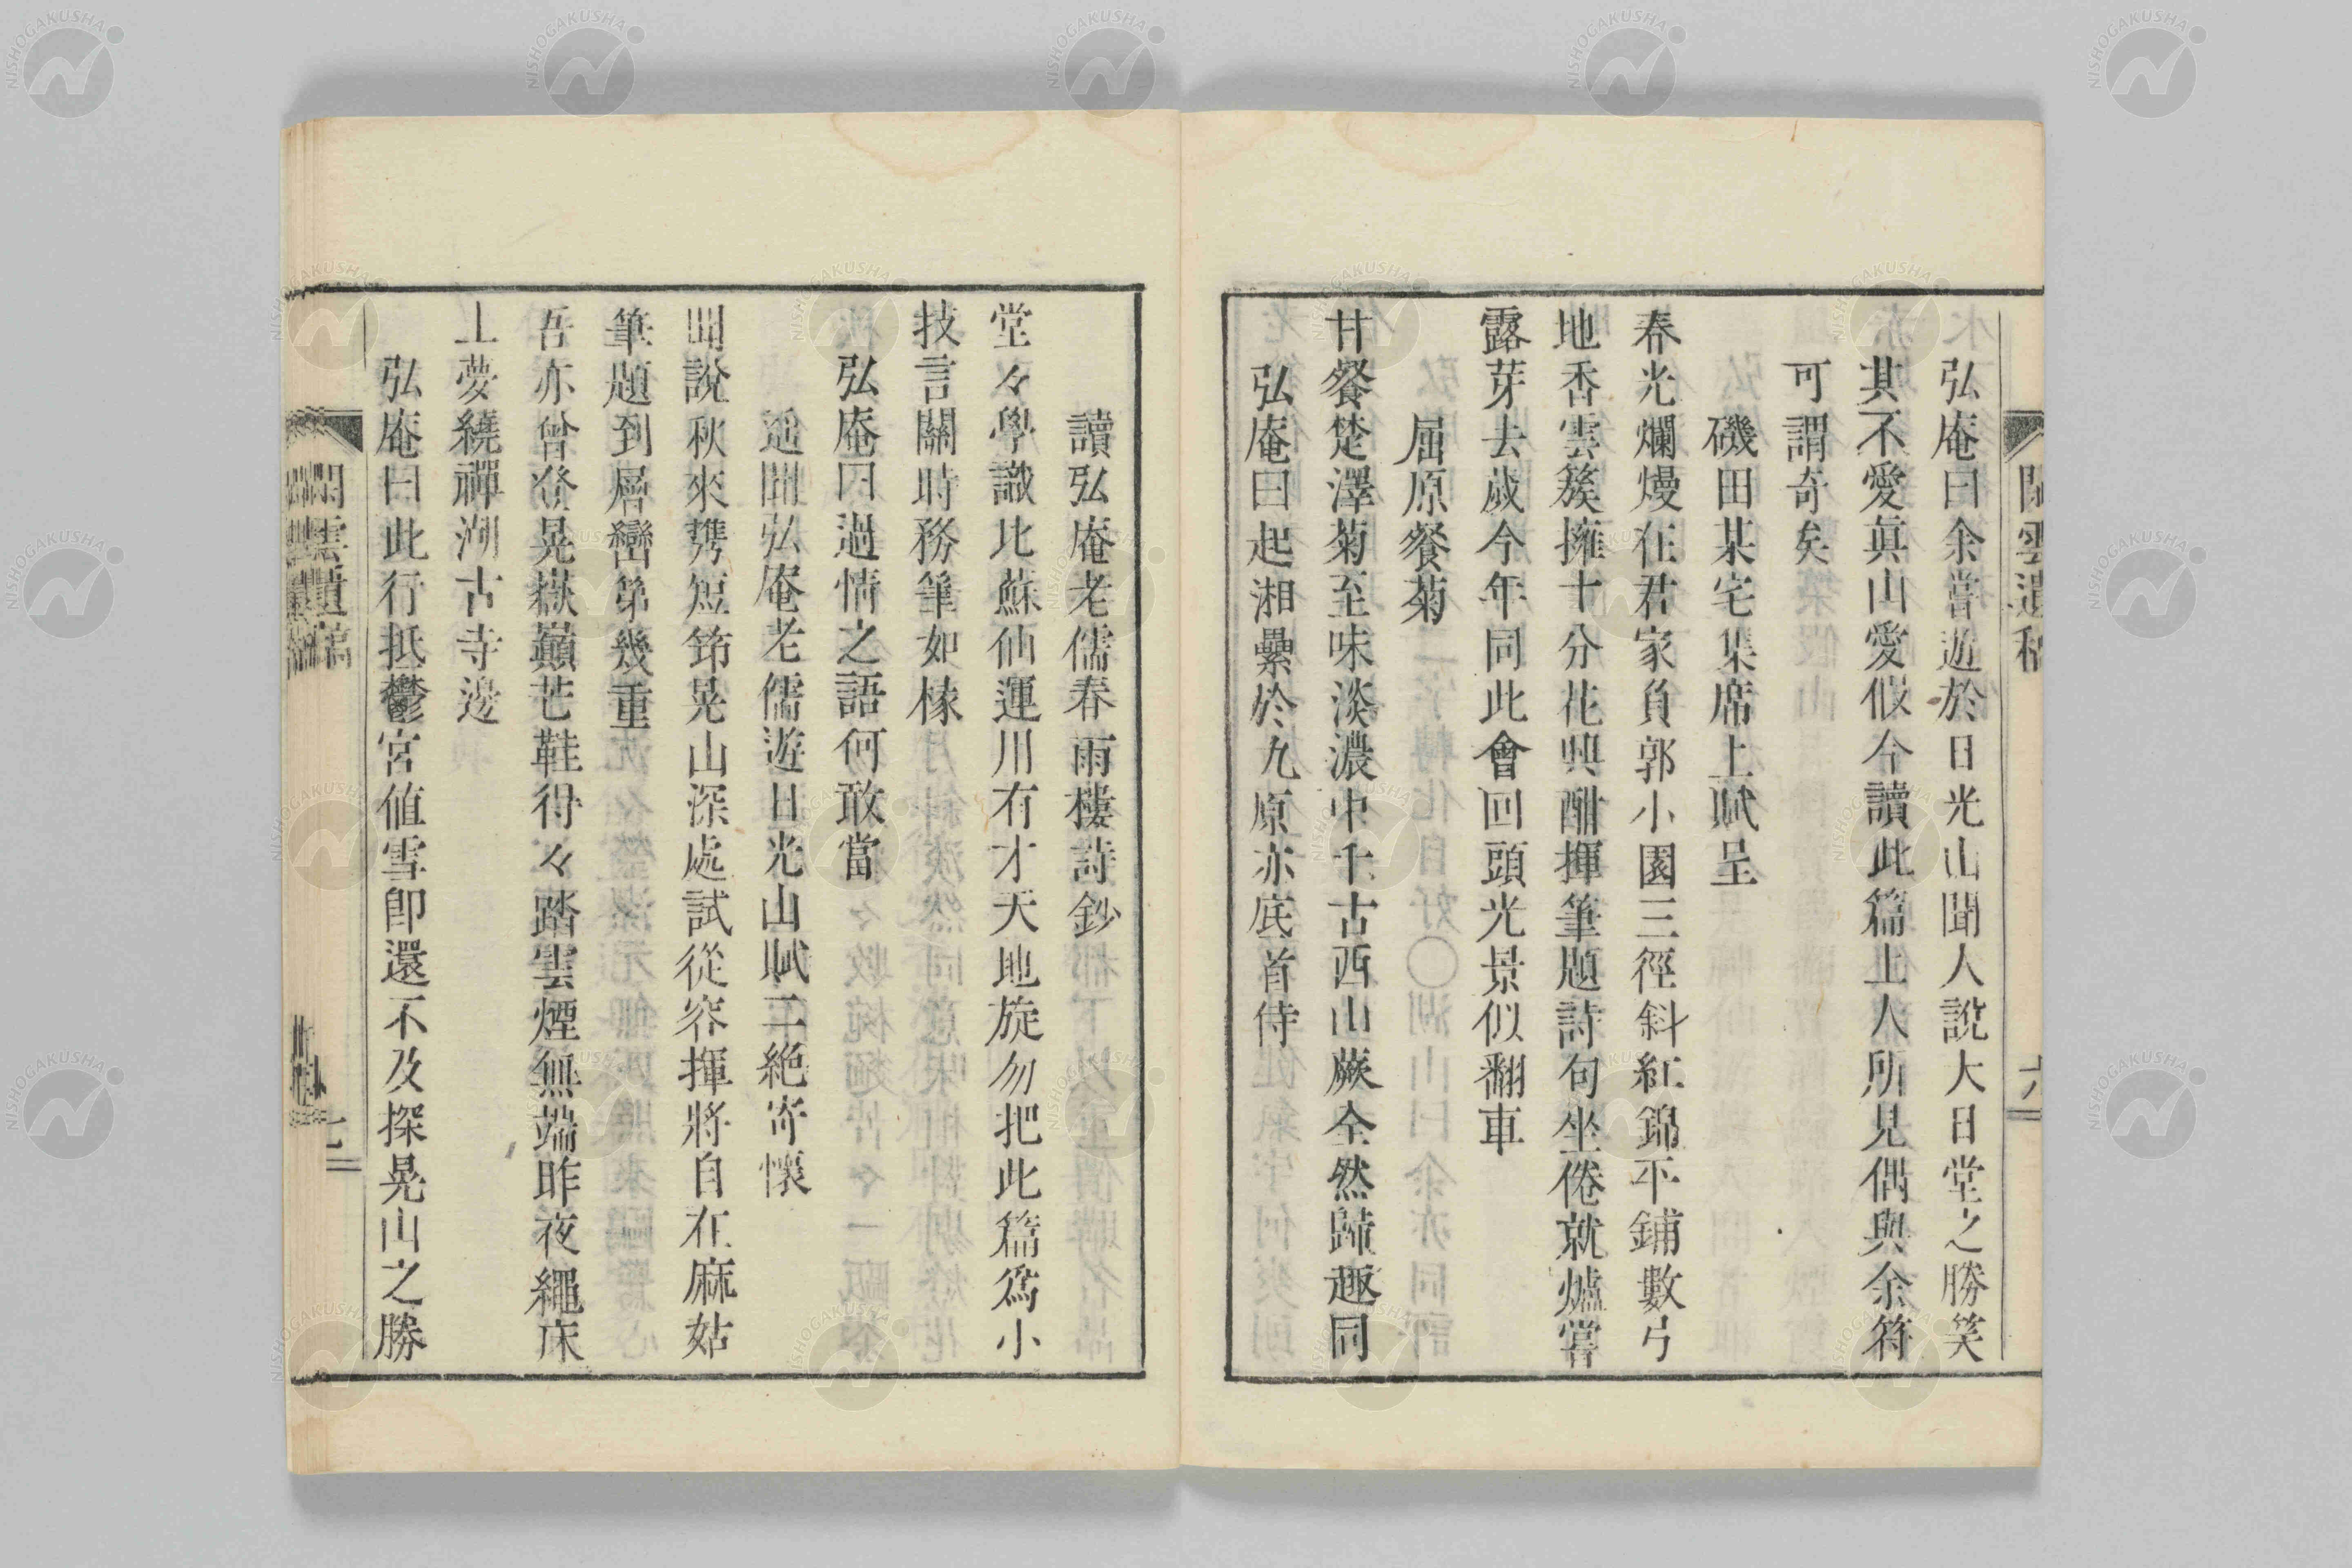 弘庵曰余嘗遊於日光山聞人說大日堂之勝笑
其不愛眞山愛假今讀此篇上人所見偶與余符
可謂奇矣
磯田某宅集席上賦呈
春光爛熳在君家負郭小園三徑斜紅錦平鋪數弓
地香雲簇擁十分花興酣揮筆題詩句坐倦就爐嘗
露芽去歲今年同此會回頭光景似翻車
屈原餐菊
甘餐楚澤菊至味淡濃中千古西山蕨全然歸趣同
弘庵曰起湘纍於九原亦底首侍
讀弘庵老儒春雨樓詩鈔
堂々學識比蘇仙運用有才天地旋勿把此篇爲小
技言關時務筆如椽
弘庵曰過情之語何敢當
遥聞弘庵老儒遊日光山賦二絶寄懷
聞說秋來携短筇晃山深處試從容揮將自在麻姑
筆題到層巒第幾重
吾亦曾登晃嶽巓芒鞋得々踏雲煙無端昨夜繩床
上夢繞禪湖古寺邊
弘庵曰此行抵鬱宮値雪卽還不及探晃山之勝
閒雲遺稿
七